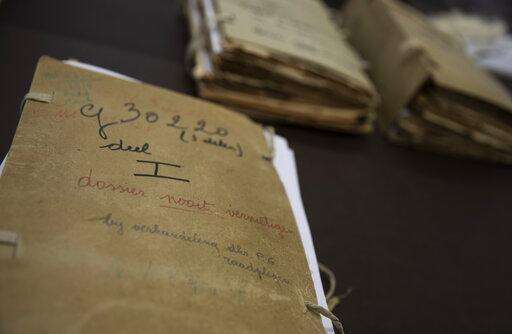 G 30220
(3 delen)
deel
I
dossier nooit vernietigen
bij verhandeling
raadplegen